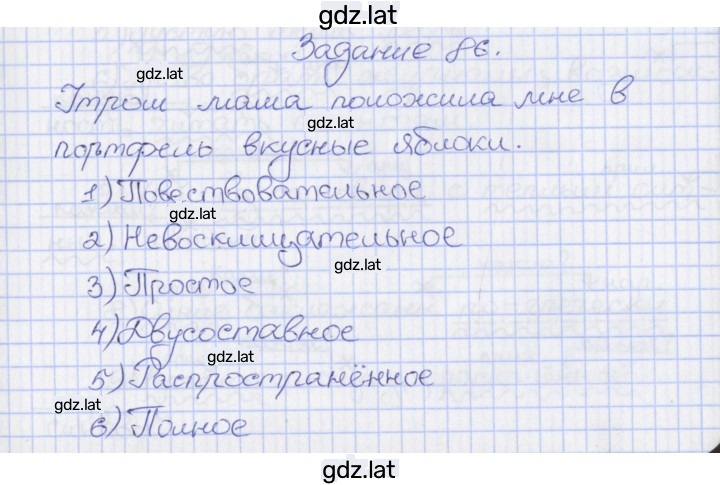 gdz.lat
Задание 86.
gdz.lat
Утром мама положила мне в
gdz.lat
портфель вкусные яблоки.
1) Повествовательное
gdz.lat
2) Невосклицательное
gdz.lat
3) Простое
4) Двусоставное
gdz.lat
5) Распространённое
gdz.lat
6) Полное
gdz.lat